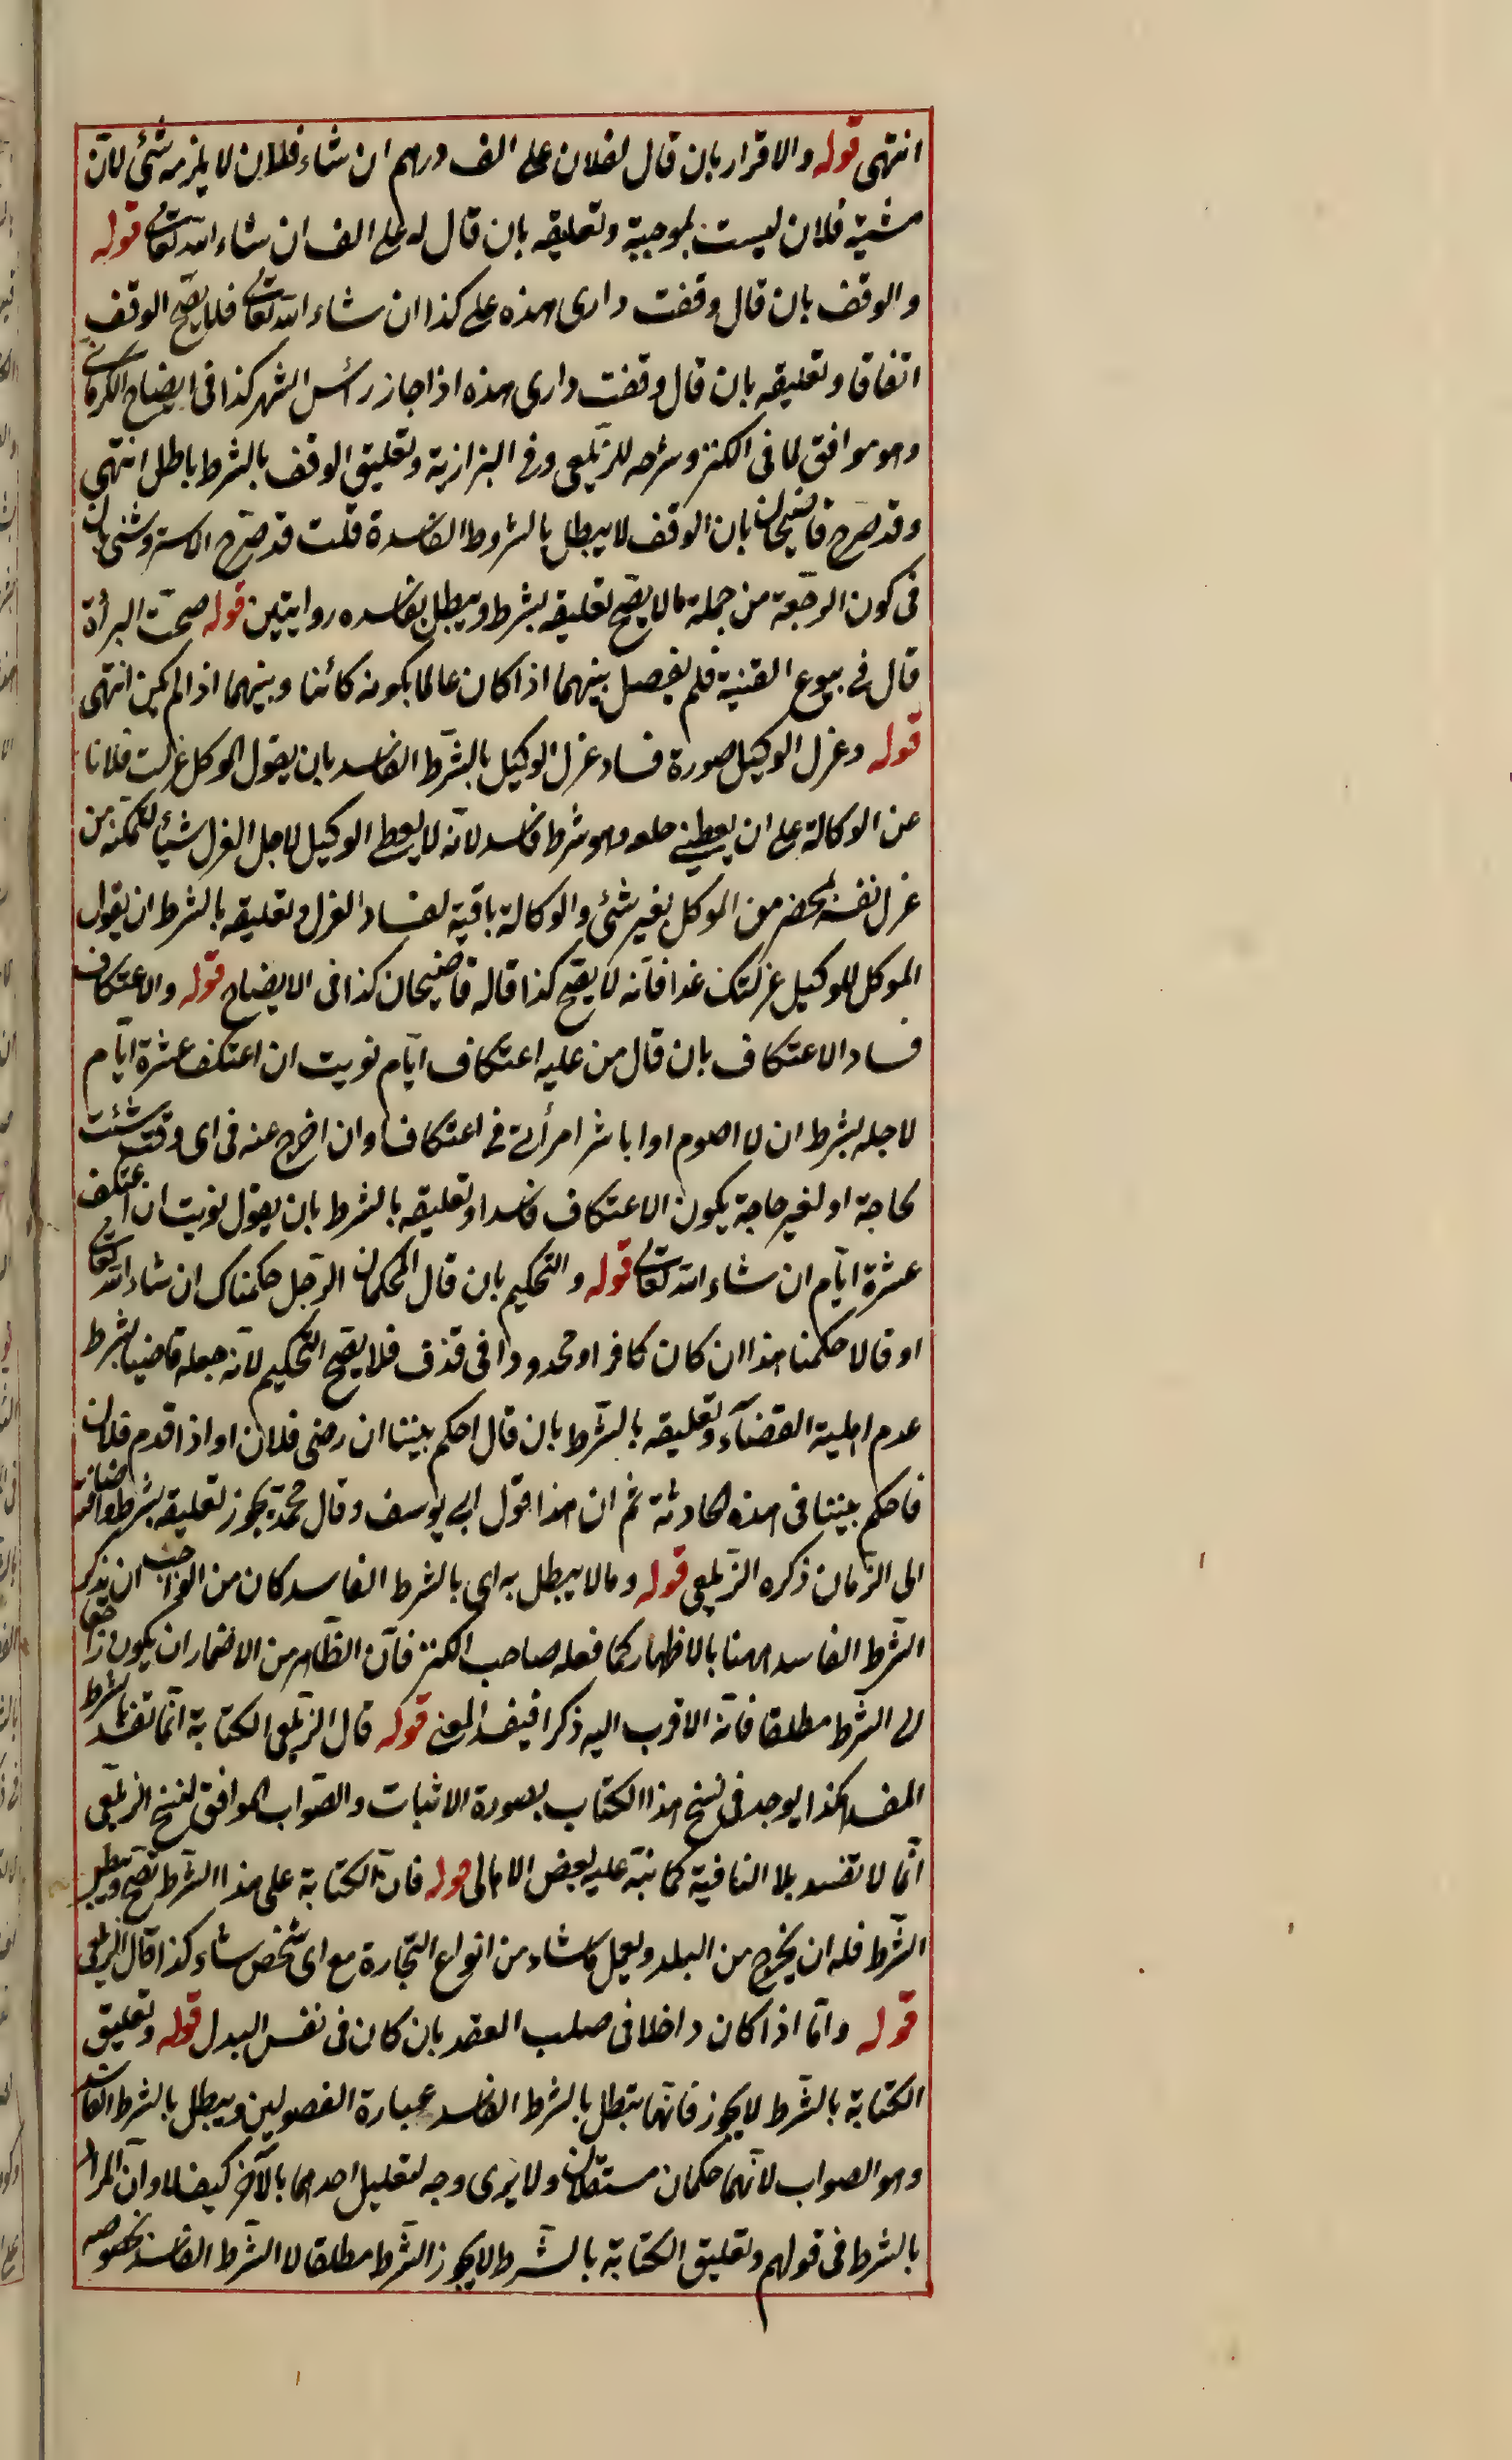 انتهى قوله والاقرار بان قال لفلان على الف درهم ان شاء فلان لا يلزمه شئ لانّ
مشيّة فلان ليست بموجبة وتعليقه بان قال له على الف ان شاء الله تعالى قوله
والوقف بان قال وقفت دارى هذه على كذا ان شاء الله تعالى فلا يصحّ الوقف
اتفاقا وتعليقه بان قال وقفت دارى هذه اذا جاز رأس الشهر كذا فى ايضاح الكرمانى
وهو موافق لما فى الكنز وشرحه للزيلعى وفى البزازية وتعليق الوقف بالشرط باطل انتهى
وقد صرح قاضيخان بان الوقف لا يبطل بالشروط الفاسدة قلت قد صرّح الاستروشنى بان
فى كون الرجعة من جملة ما لا يصحّ تعليقه بشرط ويبطل بفاسده روايتين قوله صحت البرأة
قال فى بيوع القنية فلم يفصل بينهما اذا كان عالما بكونه كائنا وبينهما اذا لم يكن انتهى
قوله وعزل الوكيل صورة فساد عزل الوكيل بالشّرط الفاسد بان يقول الموكل عزلت فلانا
عن الوكالة على ان يعطينى وهو شرط فاسد لانّه لا يعطى الوكيل لاجل العزل شيئا لتمكنه من
عزل نفسه بمحضر من الموكل بغير شئ والوكالة باقية لفساد العزل وتعليقه بالشرط ان يقول
الموكل للوكيل عزلتك غدا فانّه لا يصحّ كذا قاله قاضيخان كذا فى الايضاح قوله والاعتكاف
فساد الاعتكاف بان قال من عليه اعتكاف ايّام نويت ان اعتكف عشرة ايّام
لاجله بشرط ان لا اصوم او اباشر امرأتى فى اعتكاف او ان اخرج عنه فى اى وقت شئت
لحاجة او لغير حاجة يكون الاعتكاف فاسدا وتعليقه بالشرط بان يقول نويت ان اعتكف
عشرة ايّام ان شاء الله تعالى قوله والتحكيم بان قال المحكمان الرّجل حكمناك ان شاء الله تعالى
او قالا حكمنا هذا ان كان كافرا او محدودا فى قذف فلا يصحّ التحكيم لانّه جعله قاضيا بشرط
عدم اهلية القضآء وتعليقه بالشّرط بان قال احكم بيننا ان رضى فلان او اذا قدم فلان
فاحكم بيننا فى هذه الحادثة ثم ان هذا قول ابى يوسف وقال محمّد يجوز تعليقه بشرط واضافته
الى الزّمان ذكره الزّيلعى قوله وما لا يبطل به اى بالشرط الفاسد كان من الواجب ان يذكر
الشّرط الفاسد ههنا بالاظهار كما فعله صاحب الكنز فانّ الظّاهر من الاضمار ان يكون راجعا
الى الشّرط مطلقا فانّه الاقرب اليه ذكرا فيفسد المعنى قوله قال الزّيلعى الكتابة انّما تفسد بالشرط
المفسد هكذا يوجد فى نسخ هذا الكتاب بصورة الاثبات والصّواب الموافق لنسخ الزيلعى
انّما لا تفسد بلا النافية كما نبّه عليه بعض الاهالى قوله فانّ الكتابة على هذا الشّرط تصحّ ويبطل
الشّرط فله ان يخرج من البلد ويعمل ما شاء من انواع التّجارة مع اىّ شخص شاء كذا قال الزيلعى
قوله وامّا اذا كان داخلا فى صلب العقد بان كان فى نفس البدل قوله وتعليق
الكتابة بالشّرط لا يجوز فانّها تبطل بالشرط الفاسد عبارة الفصولين ويبطل بالشرط الفاسد
وهو الصواب لانّهما حكمان مستقلان ولا يرى وجه لتعليل احدهما بالآخر كيف لا وانّ المراد
بالشرط فى قولهم وتعليق الكتابة بالشّرط لا يجوز الشّرط مطلقا لا الشّرط الفاسد بخصوصه